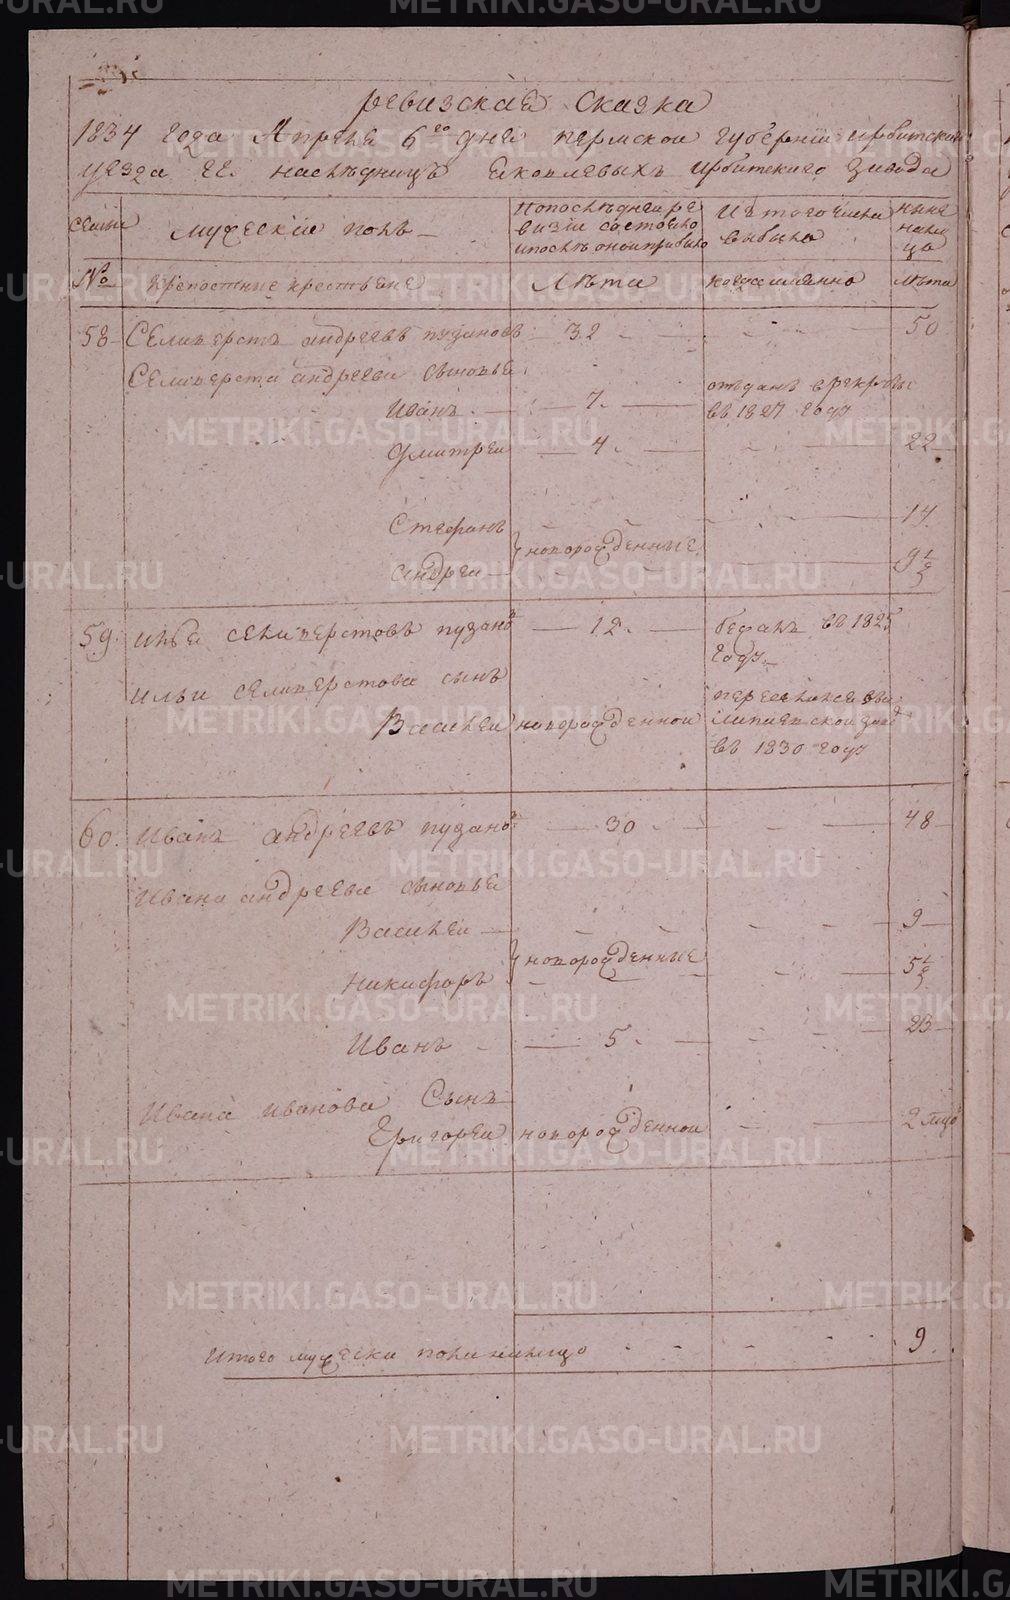 ревизская сказка
1834 года Апреля 6го дня пермской губернии ирбитскаго
уезда ее. наследницъ яковлевыхъ ирбитскаго завода
семьи
мужескій полъ
по последней ре
визіи состояло
и после оной прибыло
Изъ того числа
выбыло
ныне
на ли
цо
№
крепостные крестьяне
Лета
когда именно
лета
58 Селиверстъ андреевъ пузановъ 32 50
Селиверста андреева сыновья
Иванъ 7 отданъ в рекруты
въ 1827 году
Дмитрей 4 22
Стефанъ 14
новорожденные
андрей 9 1/2
59. илья селиверстовъ пузановъ 12 бежалъ въ 1825
году
ильи селиверстова сынъ
Василей новорожденной
въ 1830 году
60. Иванъ андреевъ пузановъ 30 48
ивана андреева сыновья
Василей 9
новорожденные
никифоръ 5 1/2
Иванъ 5 23
Ивана иванова Сынъ
Григорей новорожденной 2
итого мужеска пола налицо 9
METRIKI.GASO-URAL.RU